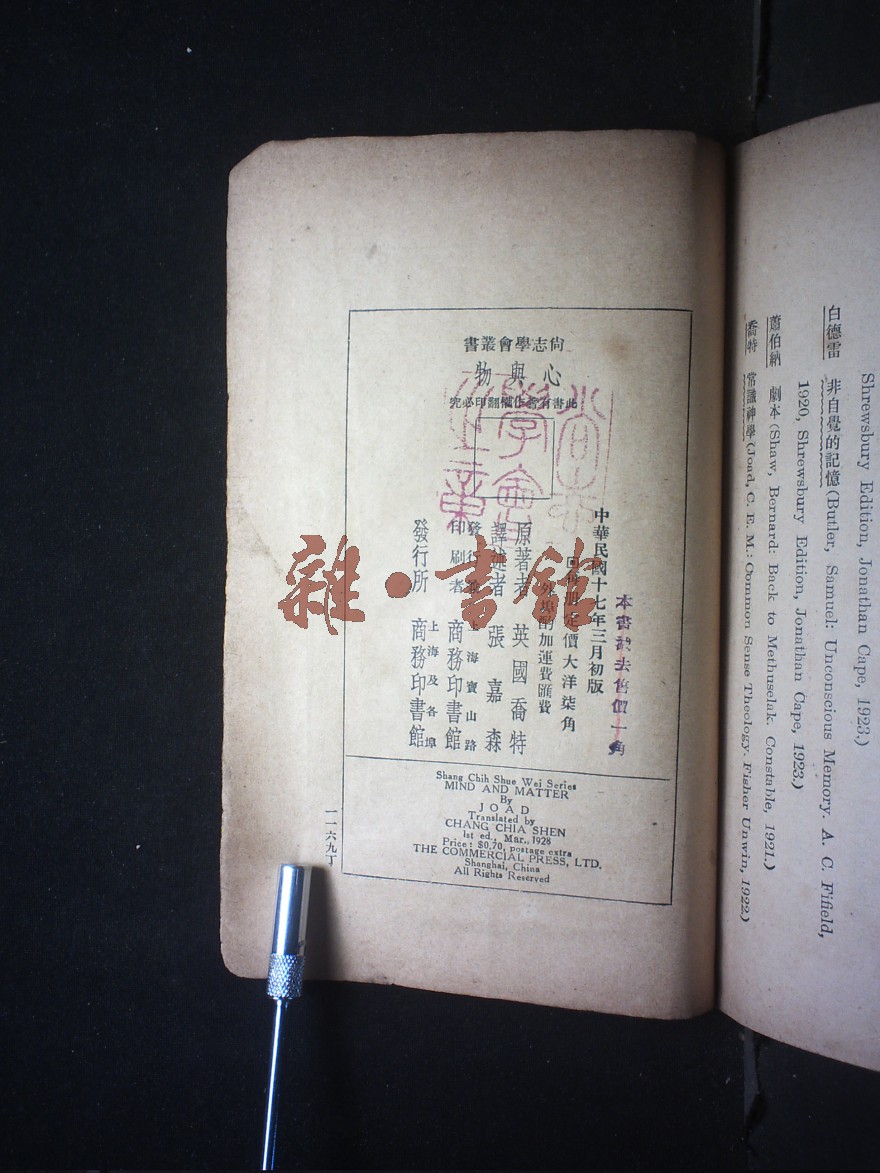 尙志學會叢書
心與物
此書有著作權翻印必究
中華民國十七年三月初版
定價大洋柒角
外埠酌加運費匯費
原著者 英國喬特
譯述者 張嘉森
發行兼印刷者 上海寶山路 商務印書館
發行所 上海及各埠 商務印書館
尚志學會之章
售價一角
雜·書館
Shang Chih Shue Wei Series
MIND AND MATTER
By
JOAD
Translated by
CHANG CHIA SHEN
1st ed., Mar., 1928
Price: $0.70, postage extra
THE COMMERCIAL PRESS, LTD.
Shanghai, China
All Rights Reserved
一一六九丁
Shrewsbury Edition, Jonathan Cape, 1923.)
白德雷 非自覺的記憶(Butler, Samuel: Unconscious Memory. A. C. Fifield,
1920, Shrewsbury Edition, Jonathan Cape, 1923.)
蕭伯納 劇本(Shaw, Bernard: Back to Methuselak. Constable, 1921.)
喬特 常識神學(Joad, C. E. M.: Common Sense Theology. Fisher Unwin, 1922.)